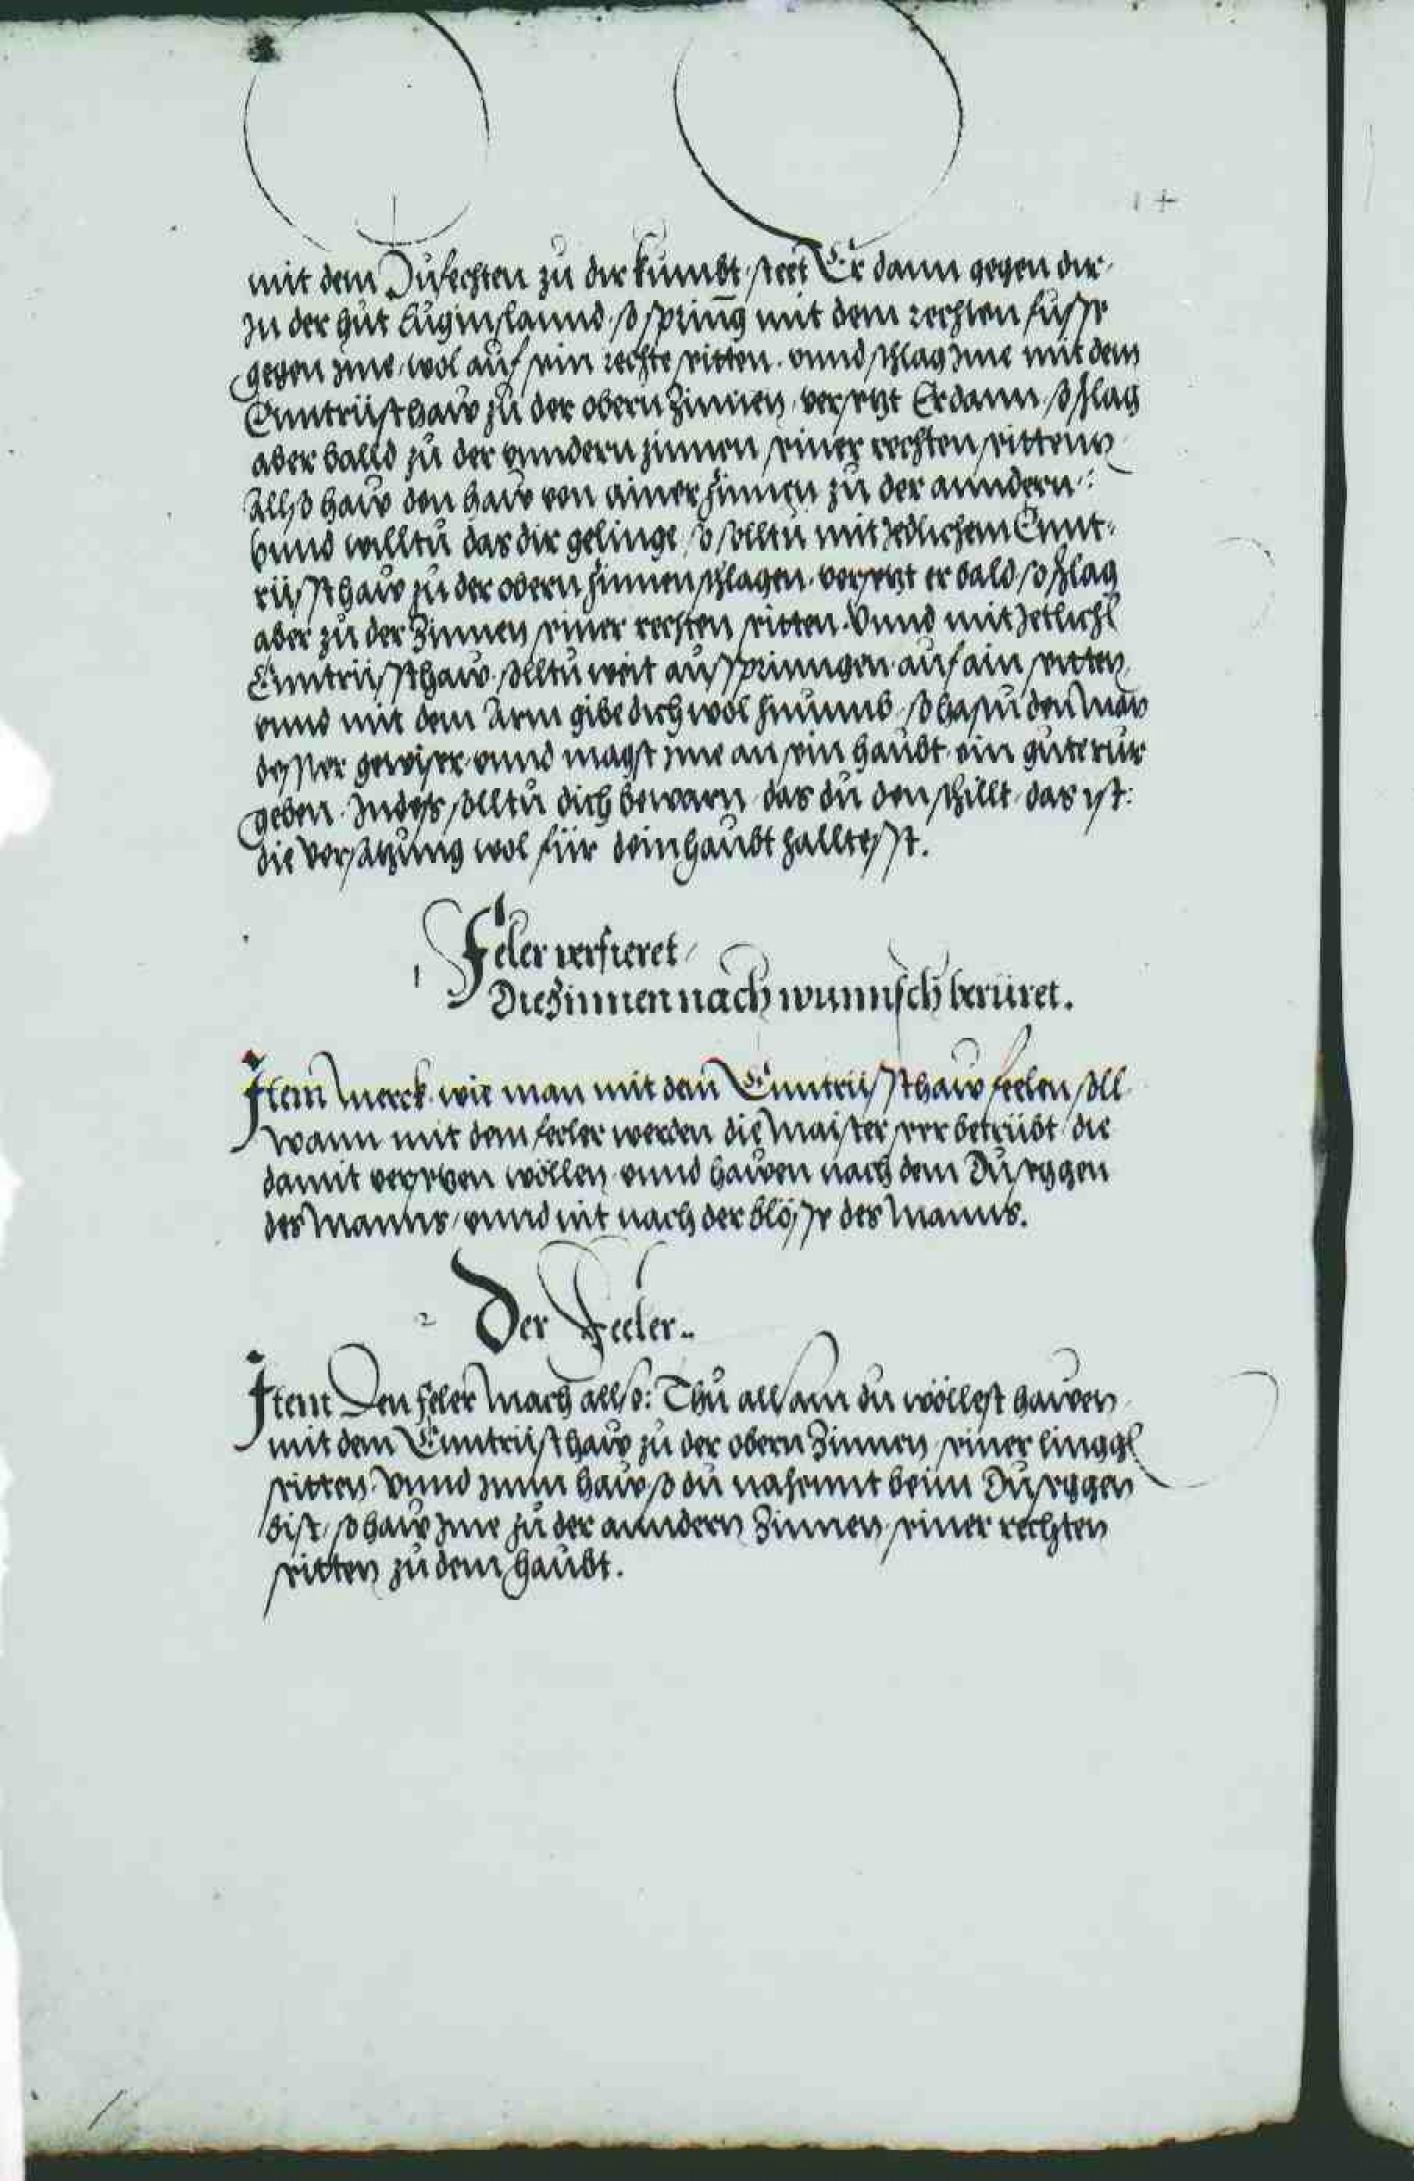 14
mit dem Zufechten zu dir kumbt, steet Er dann gegen dir,
In der hut Luginslannd, so spring mit dem rechten fusse
gegen ime, wol auf sein rechte seitten, vnnd schlag Ime mit dem
Enntrüsthaw zu der obern Zinnen, versetzt Er dann, so schlag
aber balld zu der vnndern zinnen seiner rechten seittenn
Allso haw den haw von ainer zinnen zu der anndern:
vnnd willtu das dir gelinge, so solltu mit Jedlichem Ennt-
rüssthaw zu der obern zinnen schlagen, versetzt er bald so schlag
aber zu der Zinnen seiner rechten seitten. Vnnd mit Jetlichem
Enntrüssthaw, solltu weit ausspringen auf ain seitten,
vnnd mit dem Arm gibe dich wol hinumb, so hastu den Man
desster gewiser, vnnd magst ime an sein haubt, ein gute rur
geben. Indess solltu dich bewarn, das du den schillt, das ist:
die versatzung wol für dein haubt halltesst.
1 Feler verfieret,
Die Zinnen nach wunnsch berüret.
Item Merck, wie man mit dem Enntrüssthaw feelen soll
wann mit dem feeler werden die Maister seer betrübt, die
damit versetzen wöllen, vnnd hawen nach dem Dusäggen
des Manns, vnnd nit nach der blösse des Manns.
2 Der Feeler..
Item Den feler Mach allso: Thu allsam du wöllest hawen,
mit dem Enntrüsthaw zu der obern Zinnen, seiner linggen
seitten, Vnnd Inn haw so du nahennt beim Dusäggen
bist, so haw Ime zu der anndern Zinnen, seiner rechten
seitten zu dem haubt.